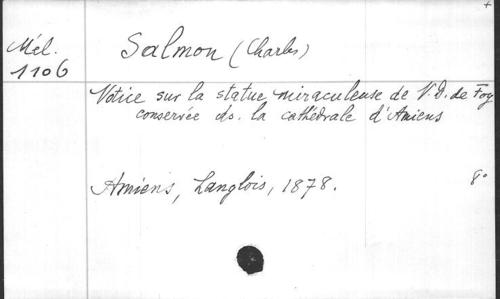 +
Mél. Salmon (Charles)
1106
Notice sur la statue miraculeuse de N.D. de Foy
conservée ds. la cathédrale d'Amiens
Amiens, Langlois, 1878. 8°